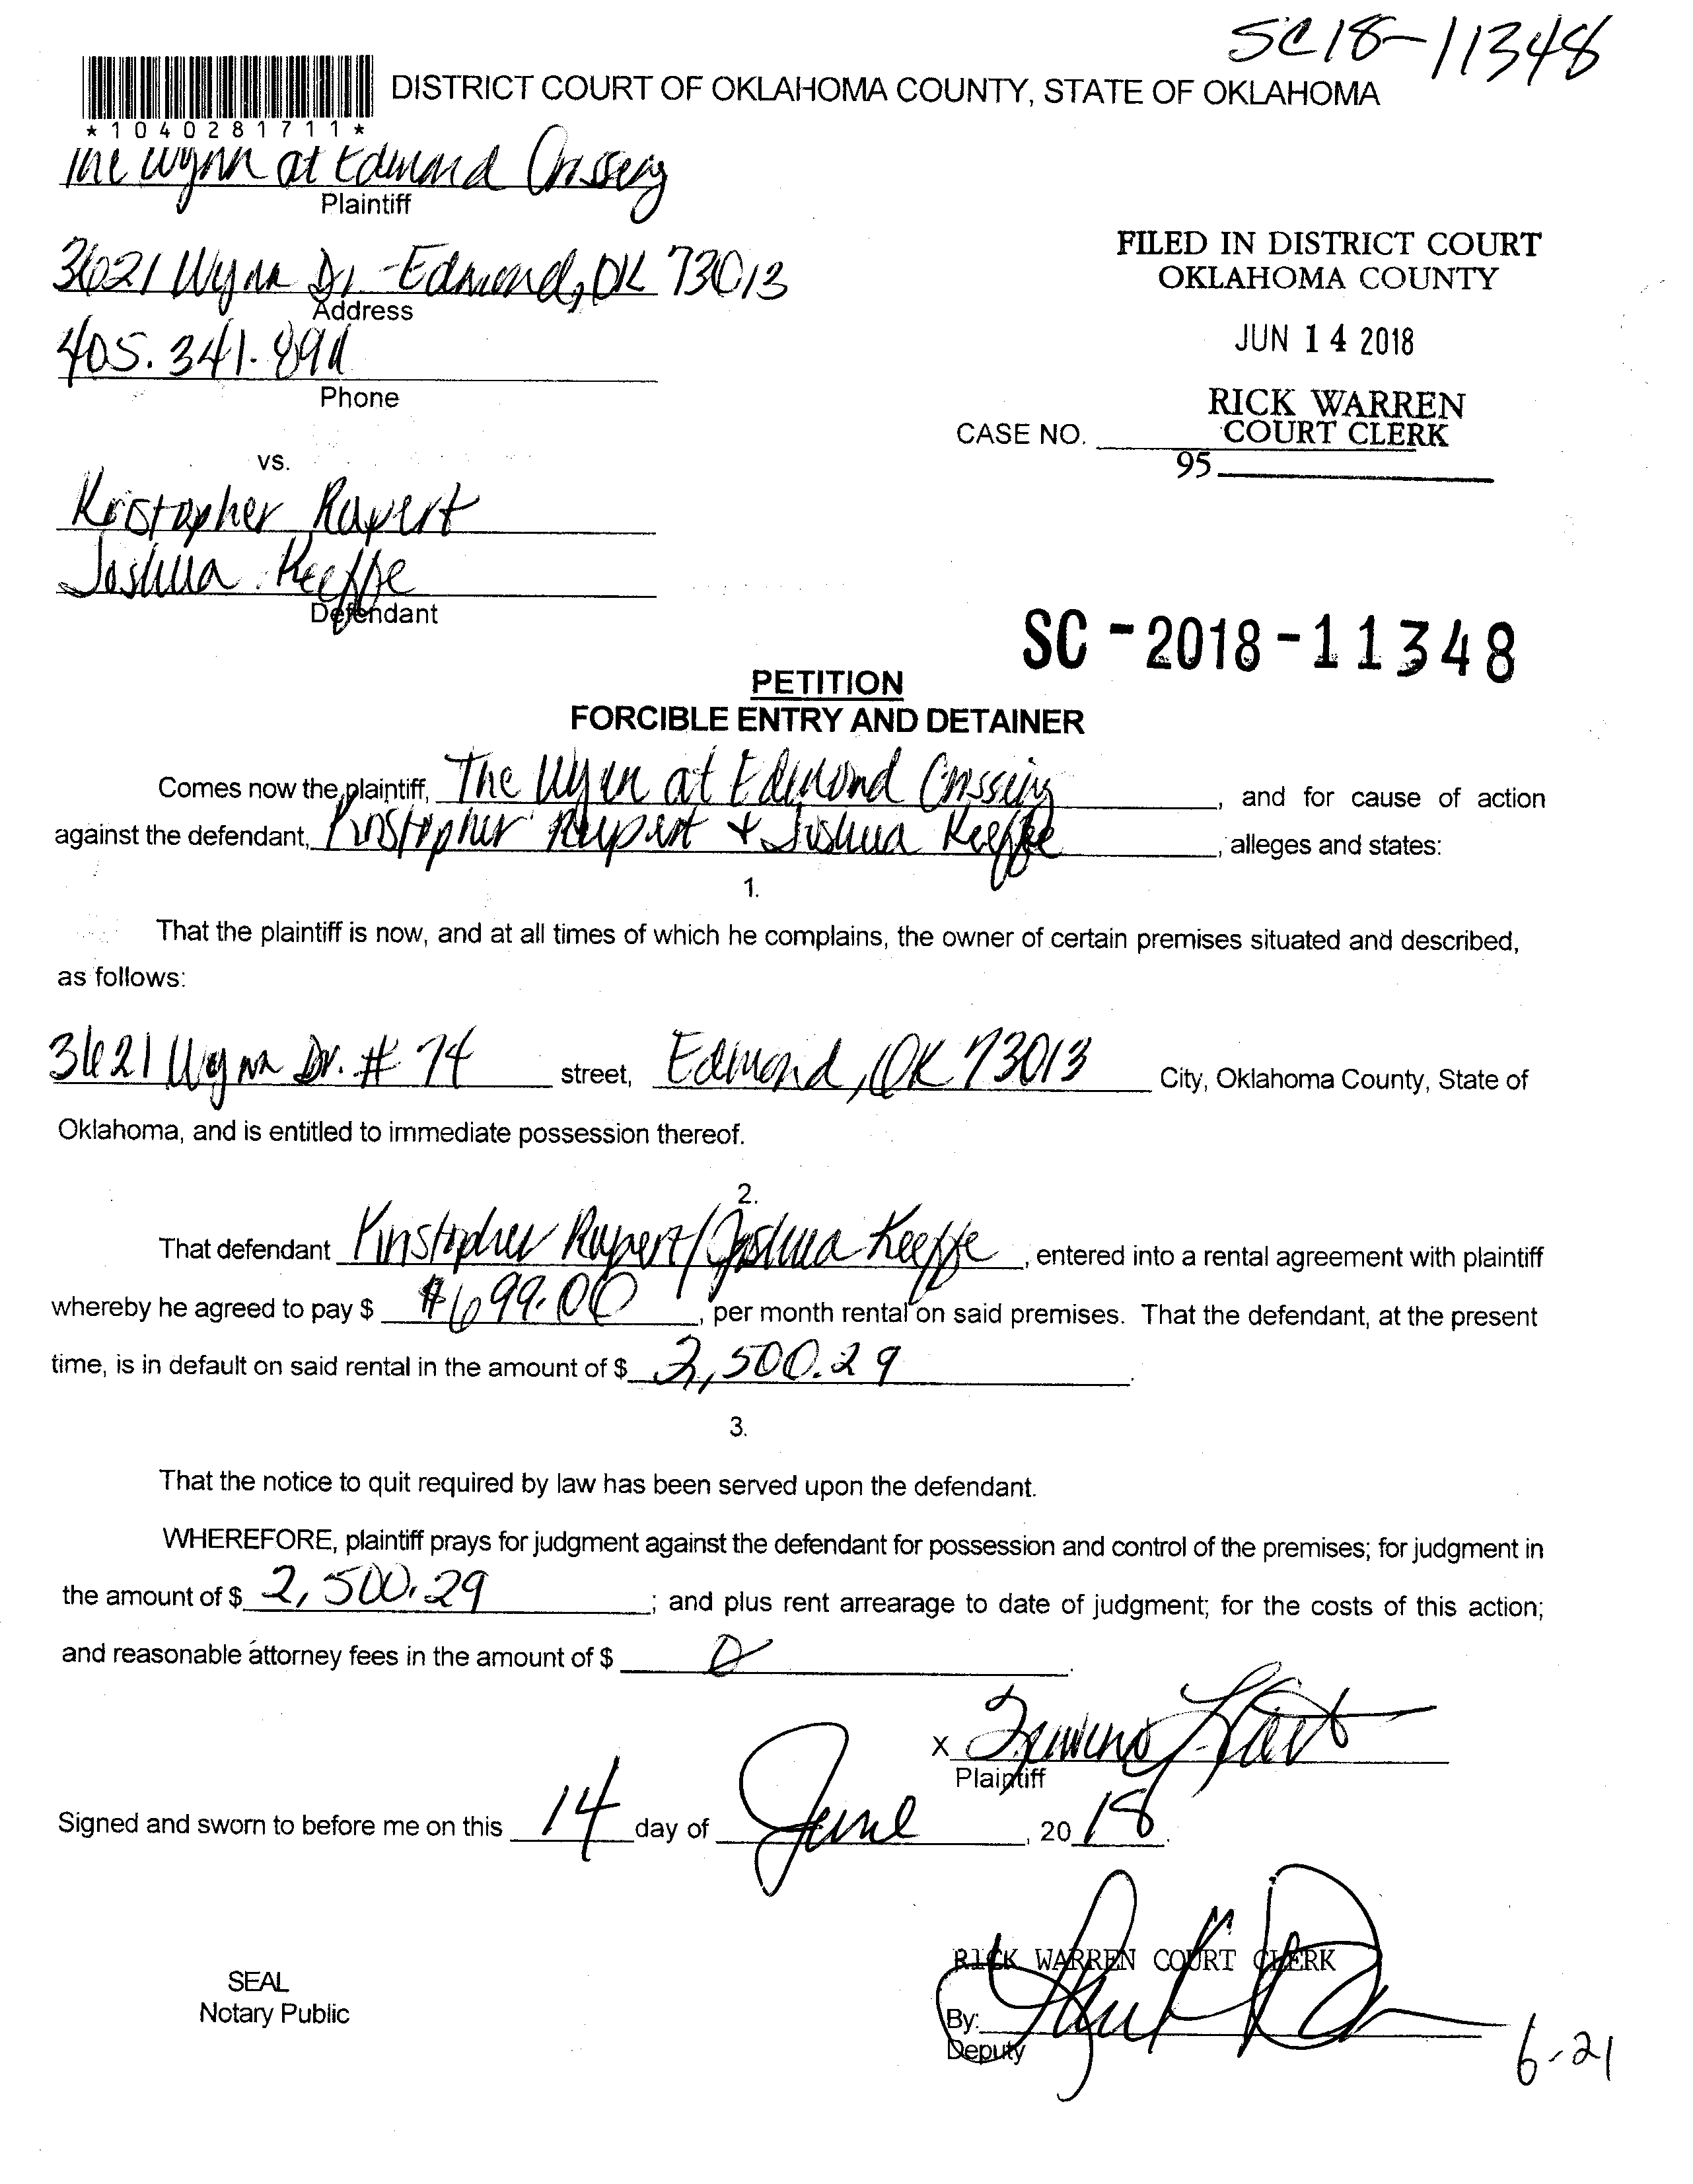 SC18-11348
DISTRICT COURT OF OKLAHOMA COUNTY, STATE OF OKLAHOMA
*1040281711*
The Wynn at Edmond Crossing
Plaintiff
3621 Wynn Dr. - Edmond, OK 73013
Address
FILED IN DISTRICT COURT
OKLAHOMA COUNTY
JUN 14 2018
405.341.
Phone
RICK WARREN
COURT CLERK
CASE NO.
95
vs.
Kristopher Rupert
Joshua Keeffe
Defendant
SC-2018-11348
PETITION
FORCIBLE ENTRY AND DETAINER
Comes now the plaintiff, The Wynn at Edmond Crossing, and for cause of action
against the defendant, Kristopher Rupert + Joshua Keeffe, alleges and states:
1.
That the plaintiff is now, and at all times of which he complains, the owner of certain premises situated and described,
as follows:
3621 Wynn Dr. # 74 street, Edmond, OK 73013 City, Oklahoma County, State of
Oklahoma, and is entitled to immediate possession thereof.
2.
That defendant Kristopher Rupert/Joshua Keeffe, entered into a rental agreement with plaintiff
whereby he agreed to pay $ #699.00, per month rental on said premises. That the defendant, at the present
time, is in default on said rental in the amount of $ 2,500.29.
3.
That the notice to quit required by law has been served upon the defendant.
WHEREFORE, plaintiff prays for judgment against the defendant for possession and control of the premises; for judgment in
the amount of $ 2,500.29; and plus rent arrearage to date of judgment; for the costs of this action;
and reasonable attorney fees in the amount of $ 0.
X
Plaintiff
Signed and sworn to before me on this 14 day of June, 20 18.
RICK WARREN COURT CLERK
SEAL
Notary Public
By:
Deputy
6-21